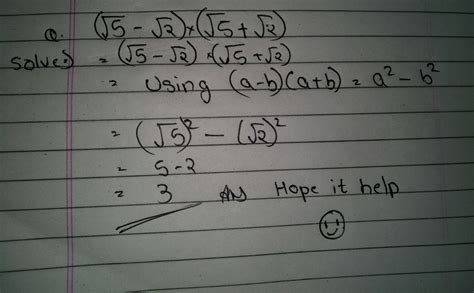 Q. (√5 - √2) × (√5 + √2)
Solve:) = (√5 - √2) × (√5 + √2)
= Using (a-b)(a+b) = a² - b²
= (√5)² - (√2)²
= 5 - 2
= 3 Ans Hope it help